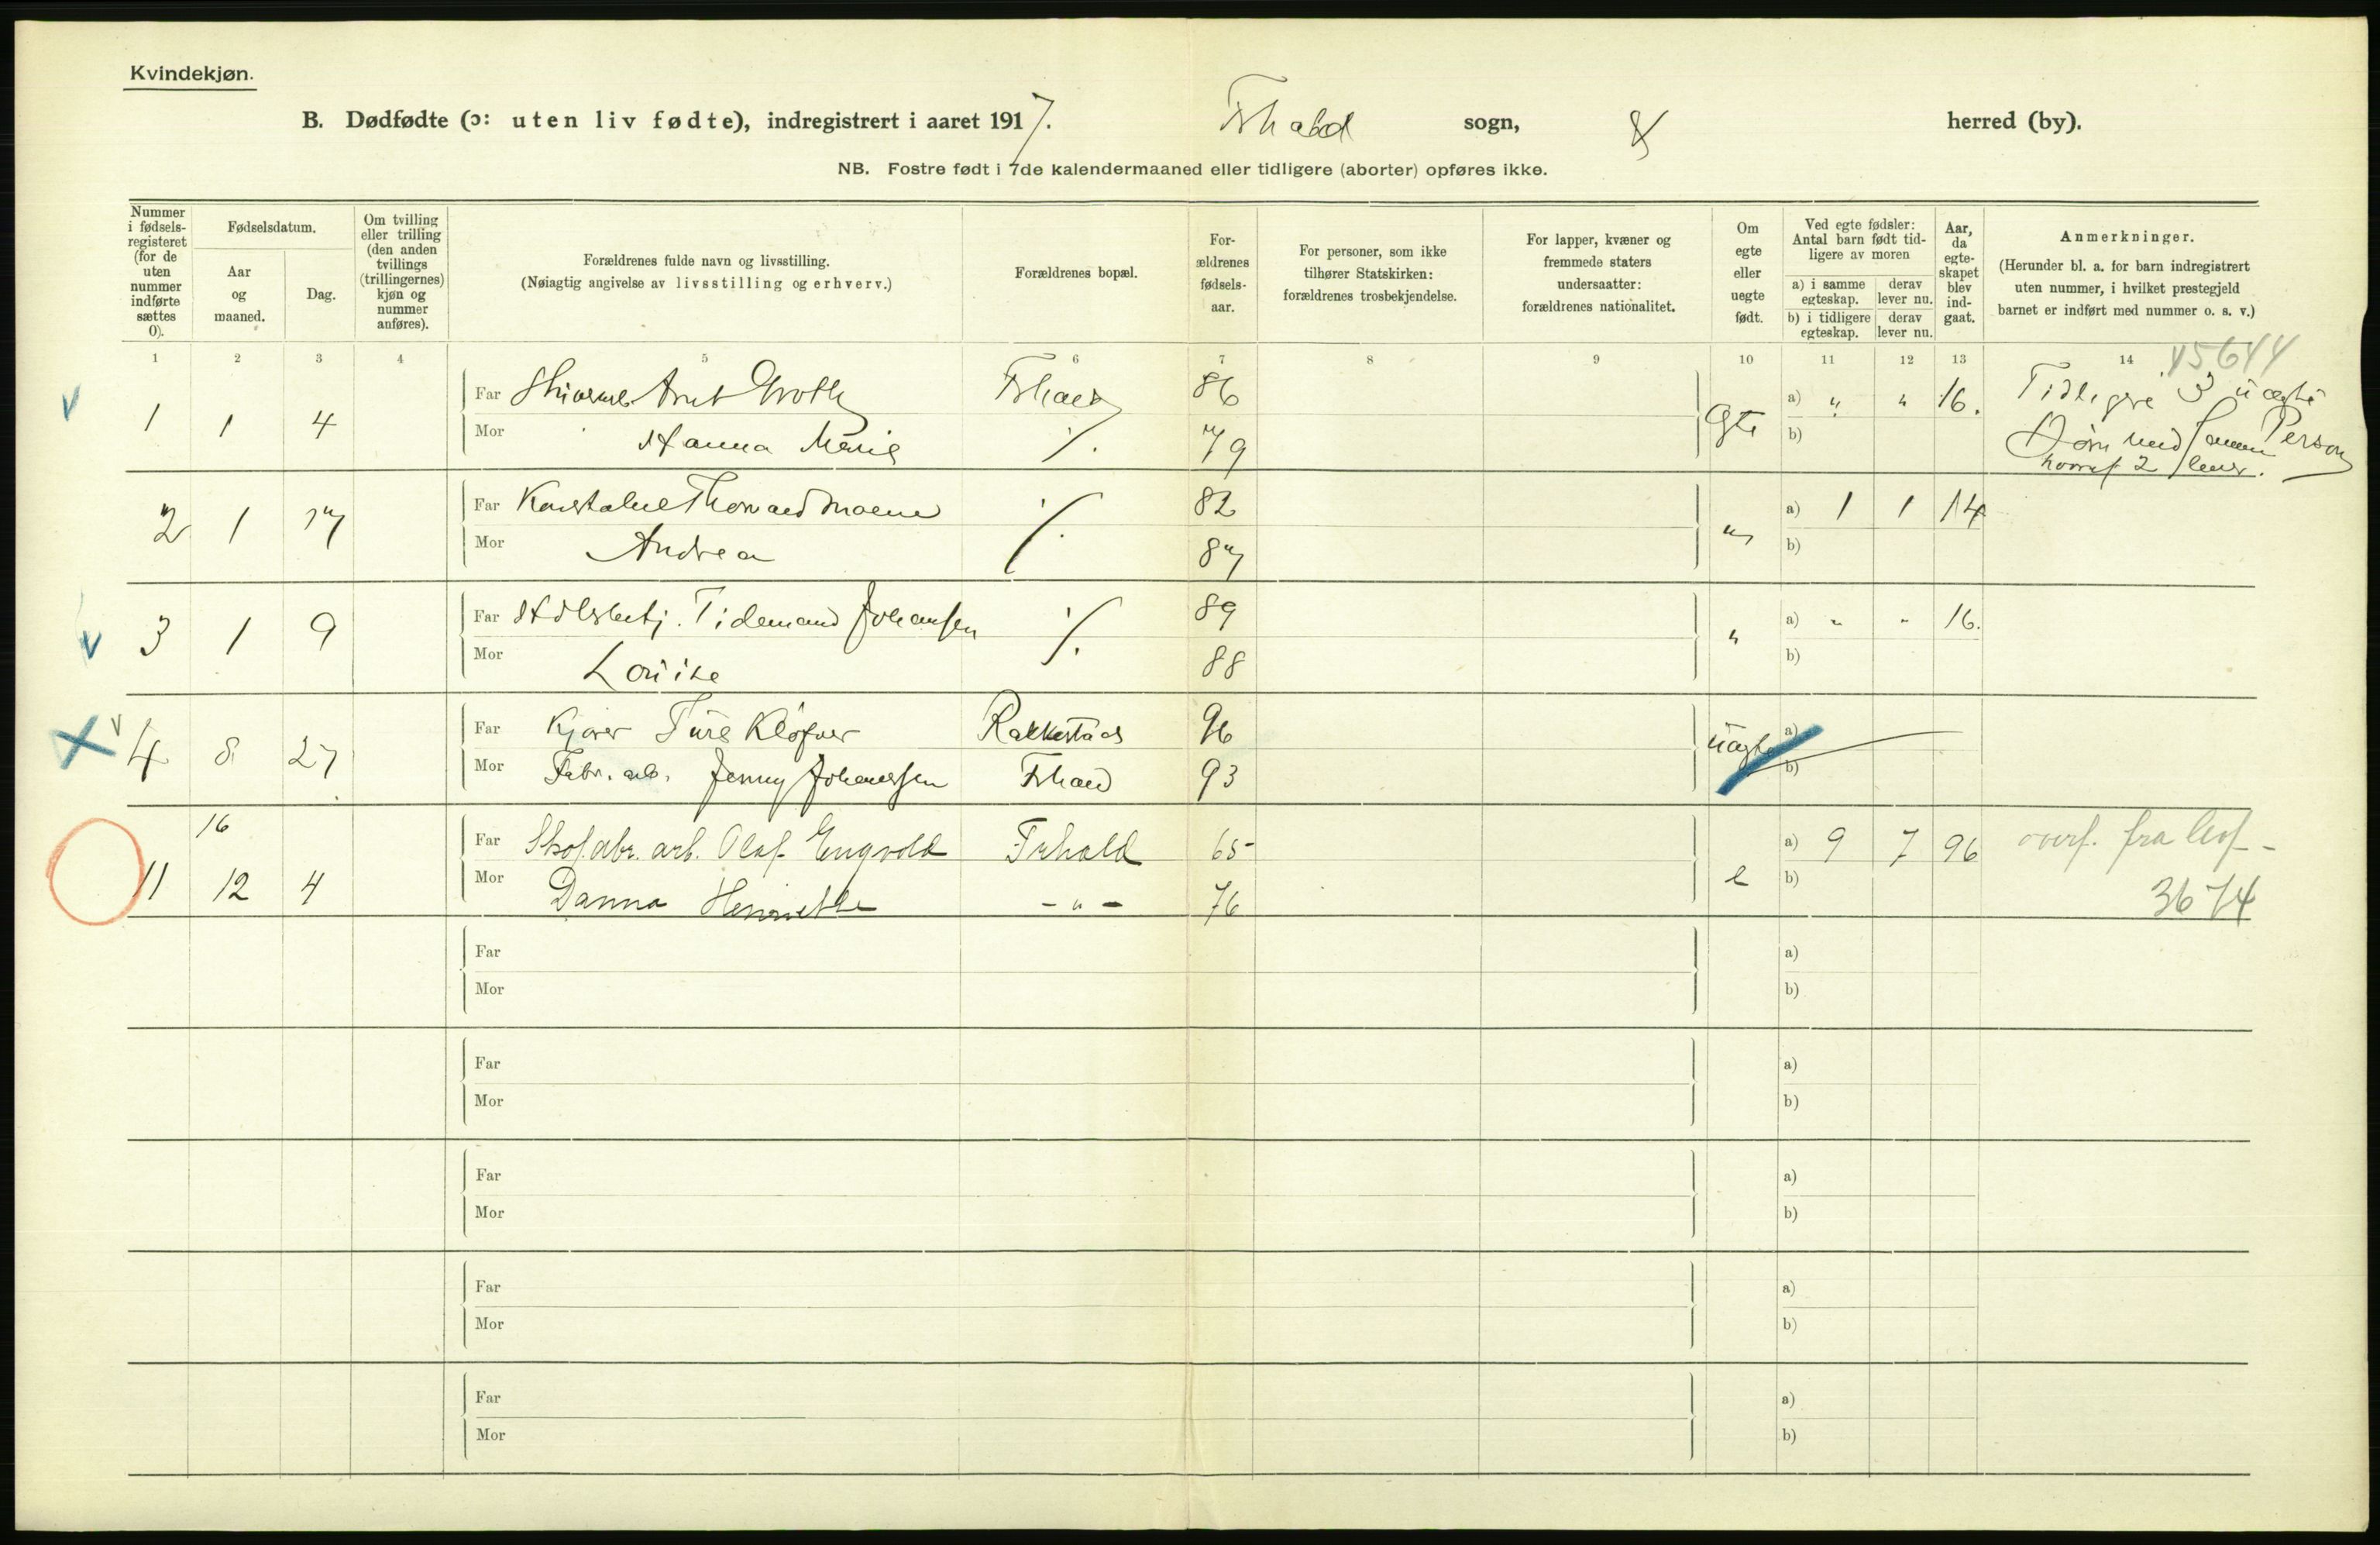 Kvindekjøn.
B. Dødfødte (ɔ: uten liv fødte), indregistrert i aaret 1917. Frhald sogn, herred (by).
NB. Fostre født i 7de kalendermaaned eller tidligere (aborter) opføres ikke.
Nummer i fødsels-registeret (for de uten nummer indførte sættes 0).
Fødselsdatum.
Aar og maaned.
Dag.
Om tvilling eller trilling (den anden tvillings (trillingernes) kjøn og nummer anføres).
Forældrenes fulde navn og livsstilling.
(Nøiagtig angivelse av livsstilling og erhverv.)
Forældrenes bopæl.
For-ældrenes fødsels-aar.
For personer, som ikke tilhører Statskirken: forældrenes trosbekjendelse.
For lapper, kvæner og fremmede staters undersaatter: forældrenes nationalitet.
Om egte eller uegte født.
Ved egte fødsler: Antal barn født tid-ligere av moren
a) i samme egteskap. derav lever nu.
b) i tidligere egteskap. derav lever nu.
Aar, da egte-skapet blev ind-gaat.
Anmerkninger.
(Herunder bl. a. for barn indregistrert uten nummer, i hvilket prestegjeld barnet er indført med nummer o. s. v.)
1 2 3 4 5 6 7 8 9 10 11 12 13 14
45644
1 1 4 Far Groth 86 Egte a) " " 16. Tidligere 3 uægte
Mor Hanna Marie 79 b) Børn med samme Person
hvoraf 2 lever.
2 1 17 Far Konstabel Thorvald Moene 82 " a) 1 1 14
Mor Andrea 87 b)
3 1 9 Far Tidemand Johansen 89 " a) " " 16.
Mor Lovise 88 b)
4 8 27 Far Ture Rakkestad 96 uægte a)
Mor Fabr. arb. Jenny Johansen Frhald 93 b)
16
11 12 4 Far Skofabr. arb. Olaf Engvold Frhald 65 e a) 9 7 96 overf. fra
Mor Danna Henriette - " - 76 b) 3674
Far a)
Mor b)
Far a)
Mor b)
Far a)
Mor b)
Far a)
Mor b)
Far a)
Mor b)